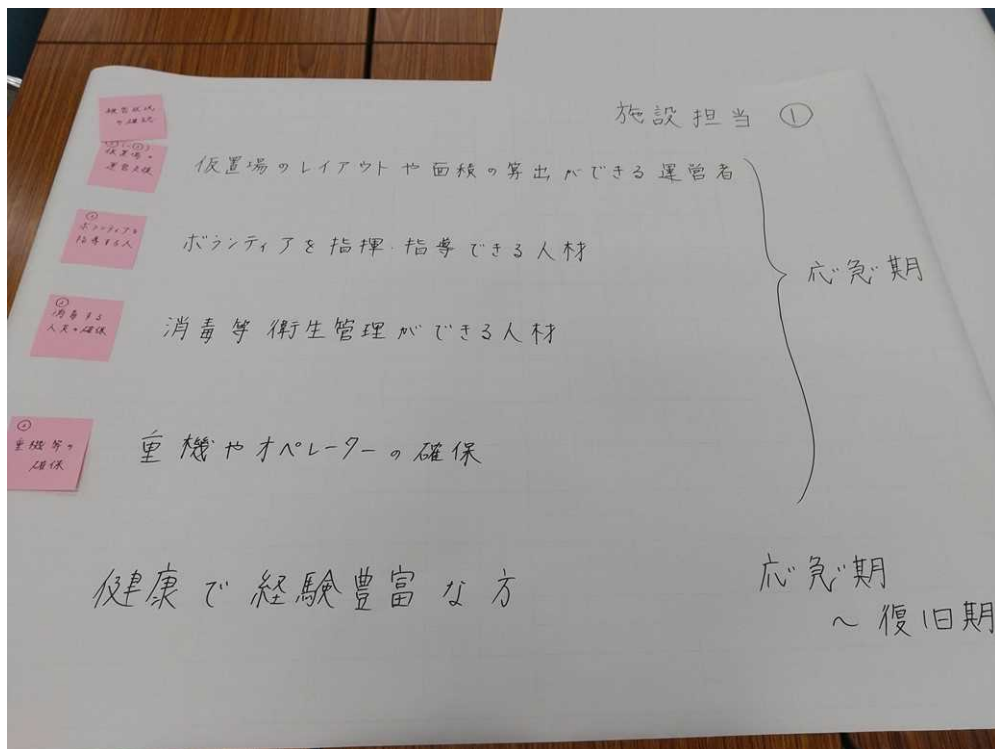 施設担当 ①
被害状況
の確認
仮置場の
運営支援
仮置場のレイアウトや面積の算出ができる運営者
ボランティアを
指導する人
ボランティアを指揮・指導できる人材
応急期
消毒する
人夫の確保
消毒等衛生管理ができる人材
重機等の
確保
重機やオペレーターの確保
健康で経験豊富な方
応急期
～復旧期